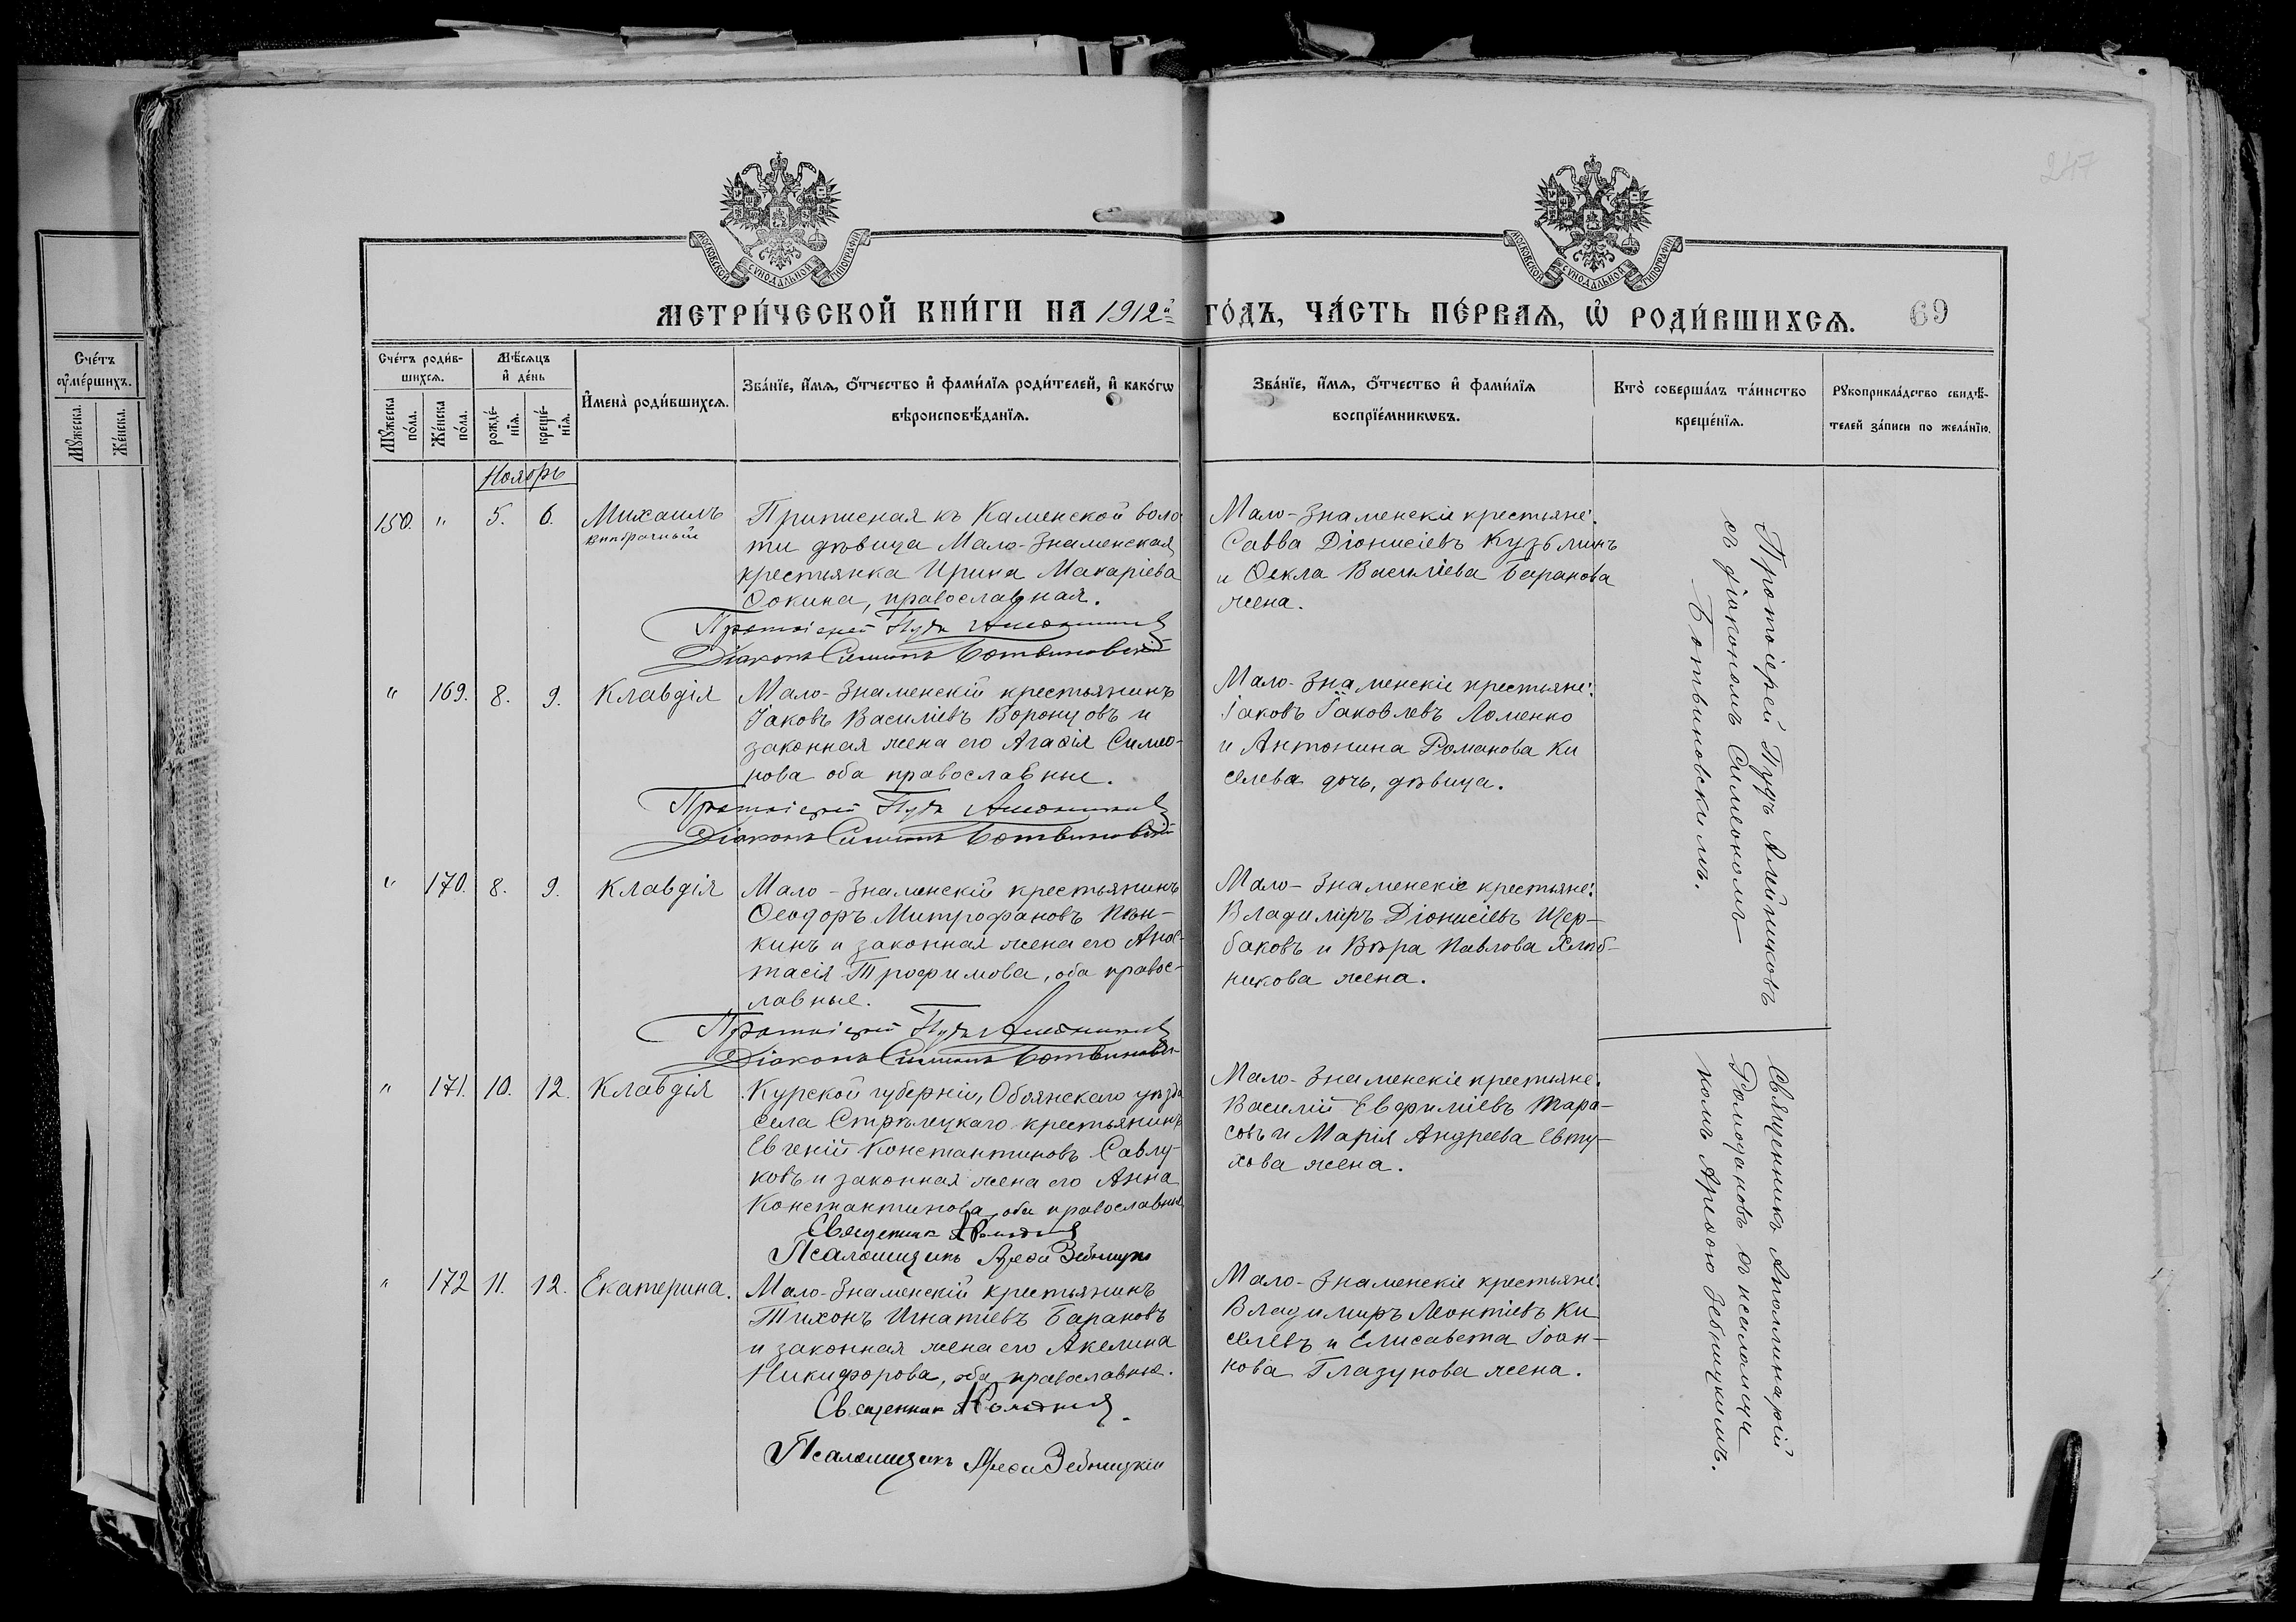 247
МОСКОВСКОЙ СУНОДАЛЬНОЙ ТИПОГРАФІИ
МОСКОВСКОЙ СУНОДАЛЬНОЙ ТИПОГРАФІИ
МЕТРИ́ЧЕСКОЙ КНИ́ГИ НА 1912й ГО́ДЪ, ЧА́СТЬ ПЕ́РВАЯ, Ѡ҆ РОДИ́ВШИХСЯ.
69
Сче́тъ ᲂу҆ме́ршихъ.
Мꙋ́жеска.
Же́нска.
Сче́тъ роди́вшихся.
Мꙋ́жеска по́ла.
Же́нска по́ла.
Мѣ́сяцъ и҆ де́нь
рожде́нїя.
креще́нїя.
И҆мена̀ роди́вшихся.
Зва́нїе, и҆́мя, ѻ҆́тчество и҆ фами́лїя роди́телей, и҆ како́гѡ
вѣроисповѣ́данїя.
Зва́нїе, и҆́мя, ѻ҆́тчество и҆ фами́лїя
воспрїе́мникѡвъ.
Кто̀ соверша́лъ та́инство
креще́нїя.
Рꙋкоприкла́дство свидѣ́-
телей за́писи по жела́нїю.
Ноябрь
150. " 5. 6. Михаилъ
внѣбрачный
Приписная къ Каменской воло
ти дѣвица Мало-Знаменская
крестьянка Ирина Макаріева
Ѳокина, православная.
Протоіерей Пудъ Алейниковъ
Діаконъ Симеонъ Ботвиновскій
Мало-Знаменскіе крестьяне:
Савва Діонисіевъ Кузьминъ
и Ѳекла Василіева Баранова
жена.
Протоіерей Пудъ Алейниковъ
съ діакономъ Симеономъ
Ботвиновскимъ.
" 169. 8. 9. Клавдія
Мало-Знаменскій крестьянинъ
Іаковъ Василіевъ Воронцовъ и
законная жена его Агаѳія Симео-
нова оба православные.
Протоіерей Пудъ Алейниковъ
Діаконъ Симеонъ Ботвиновскій
Мало-Знаменскіе крестьяне:
Іаковъ Іаковлевъ Ломенко
и Антонина Романова Ки
селева дочь, дѣвица.
" 170. 8. 9. Клавдія
Мало-Знаменскій крестьянинъ
Ѳеодоръ Митрофановъ Пюн-
кинъ и законная жена его Анас-
тасія Трофимова, оба правос-
лавные.
Протоіерей Пудъ Алейниковъ
Діаконъ Симеонъ Ботвиновскій
Мало-Знаменскіе крестьяне:
Владиміръ Діонисіевъ Щер-
баковъ и Вѣра Павлова Хлѣб-
никова жена.
" 171. 10. 12. Клавдія
Курской губерніи, Обоянскаго уѣзда
села Стрѣлецкаго крестьянинъ
Евгеній Константиновъ Савлу-
ковъ и законная жена его Анна
Константинова, оба православные
Священникъ
Псаломщикъ Арсеній Зебницкій
Мало-Знаменскіе крестьяне:
Василій Евфиміевъ Тара-
совъ и Марія Андреева Евту-
хова жена.
Священникъ Аполлинарій
Ромодановъ съ псаломщи
комъ Арсеніемъ Зебницкимъ.
" 172 11. 12. Екатерина.
Мало-Знаменскій крестьянинъ
Тихонъ Игнатіевъ Барановъ
и законная жена его Акелина
Никифорова, оба православные.
Священникъ
Псаломщикъ Арсеній Зебницкій
Мало-Знаменскіе крестьяне:
Владимиръ Леонтіевъ Ки
селевъ и Елисавета Іоан-
нова Глазунова жена.